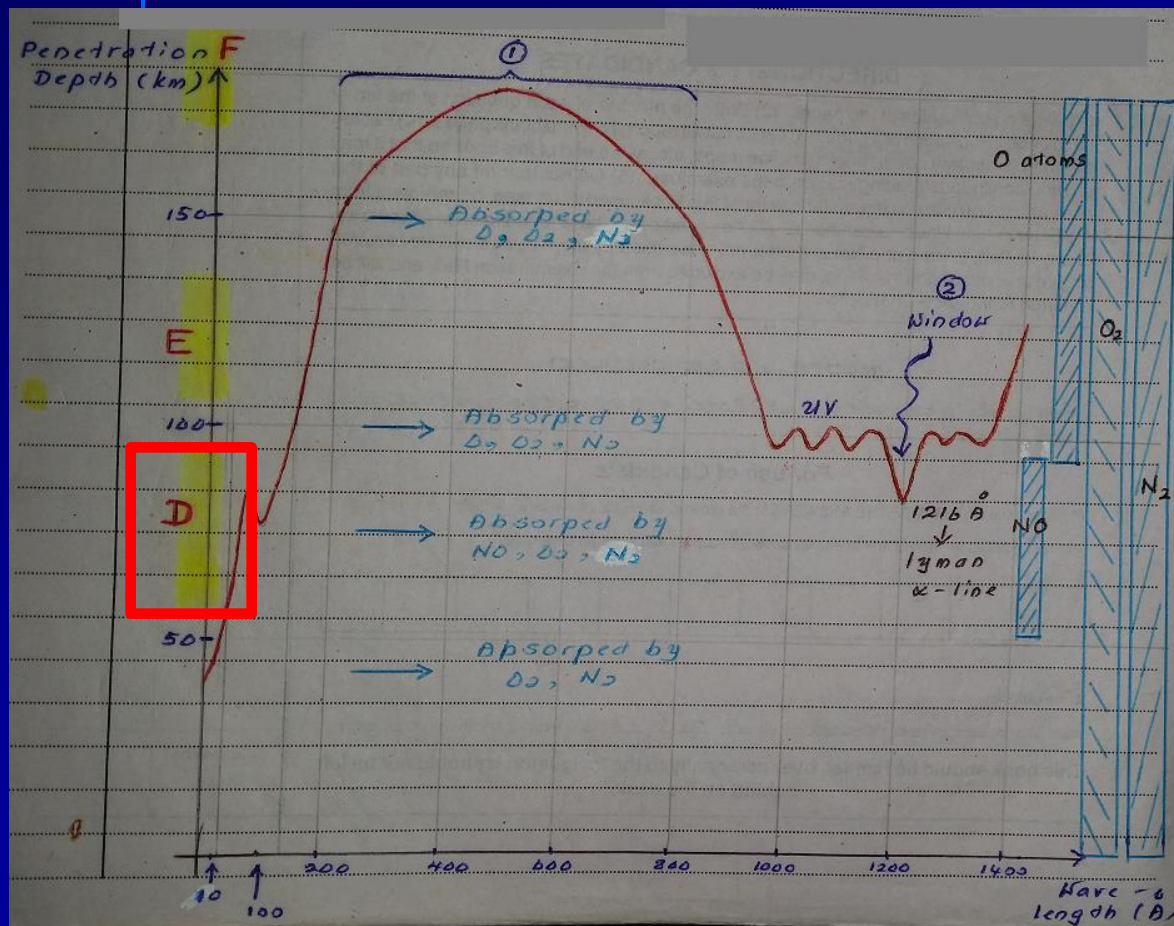 Penetration F
Depth (km)
①
O atoms
150
Absorped by
O, O2, N2
②
Window
E
O2
UV
100
Absorped by
O, O2, N2
N2
D
1216 Å
Absorped by
NO, O2, N2
NO
lyman
α-line
50
Absorped by
O2, N2
200
400
600
800
1000
1200
1400
10
100
Wave-
length (Å)